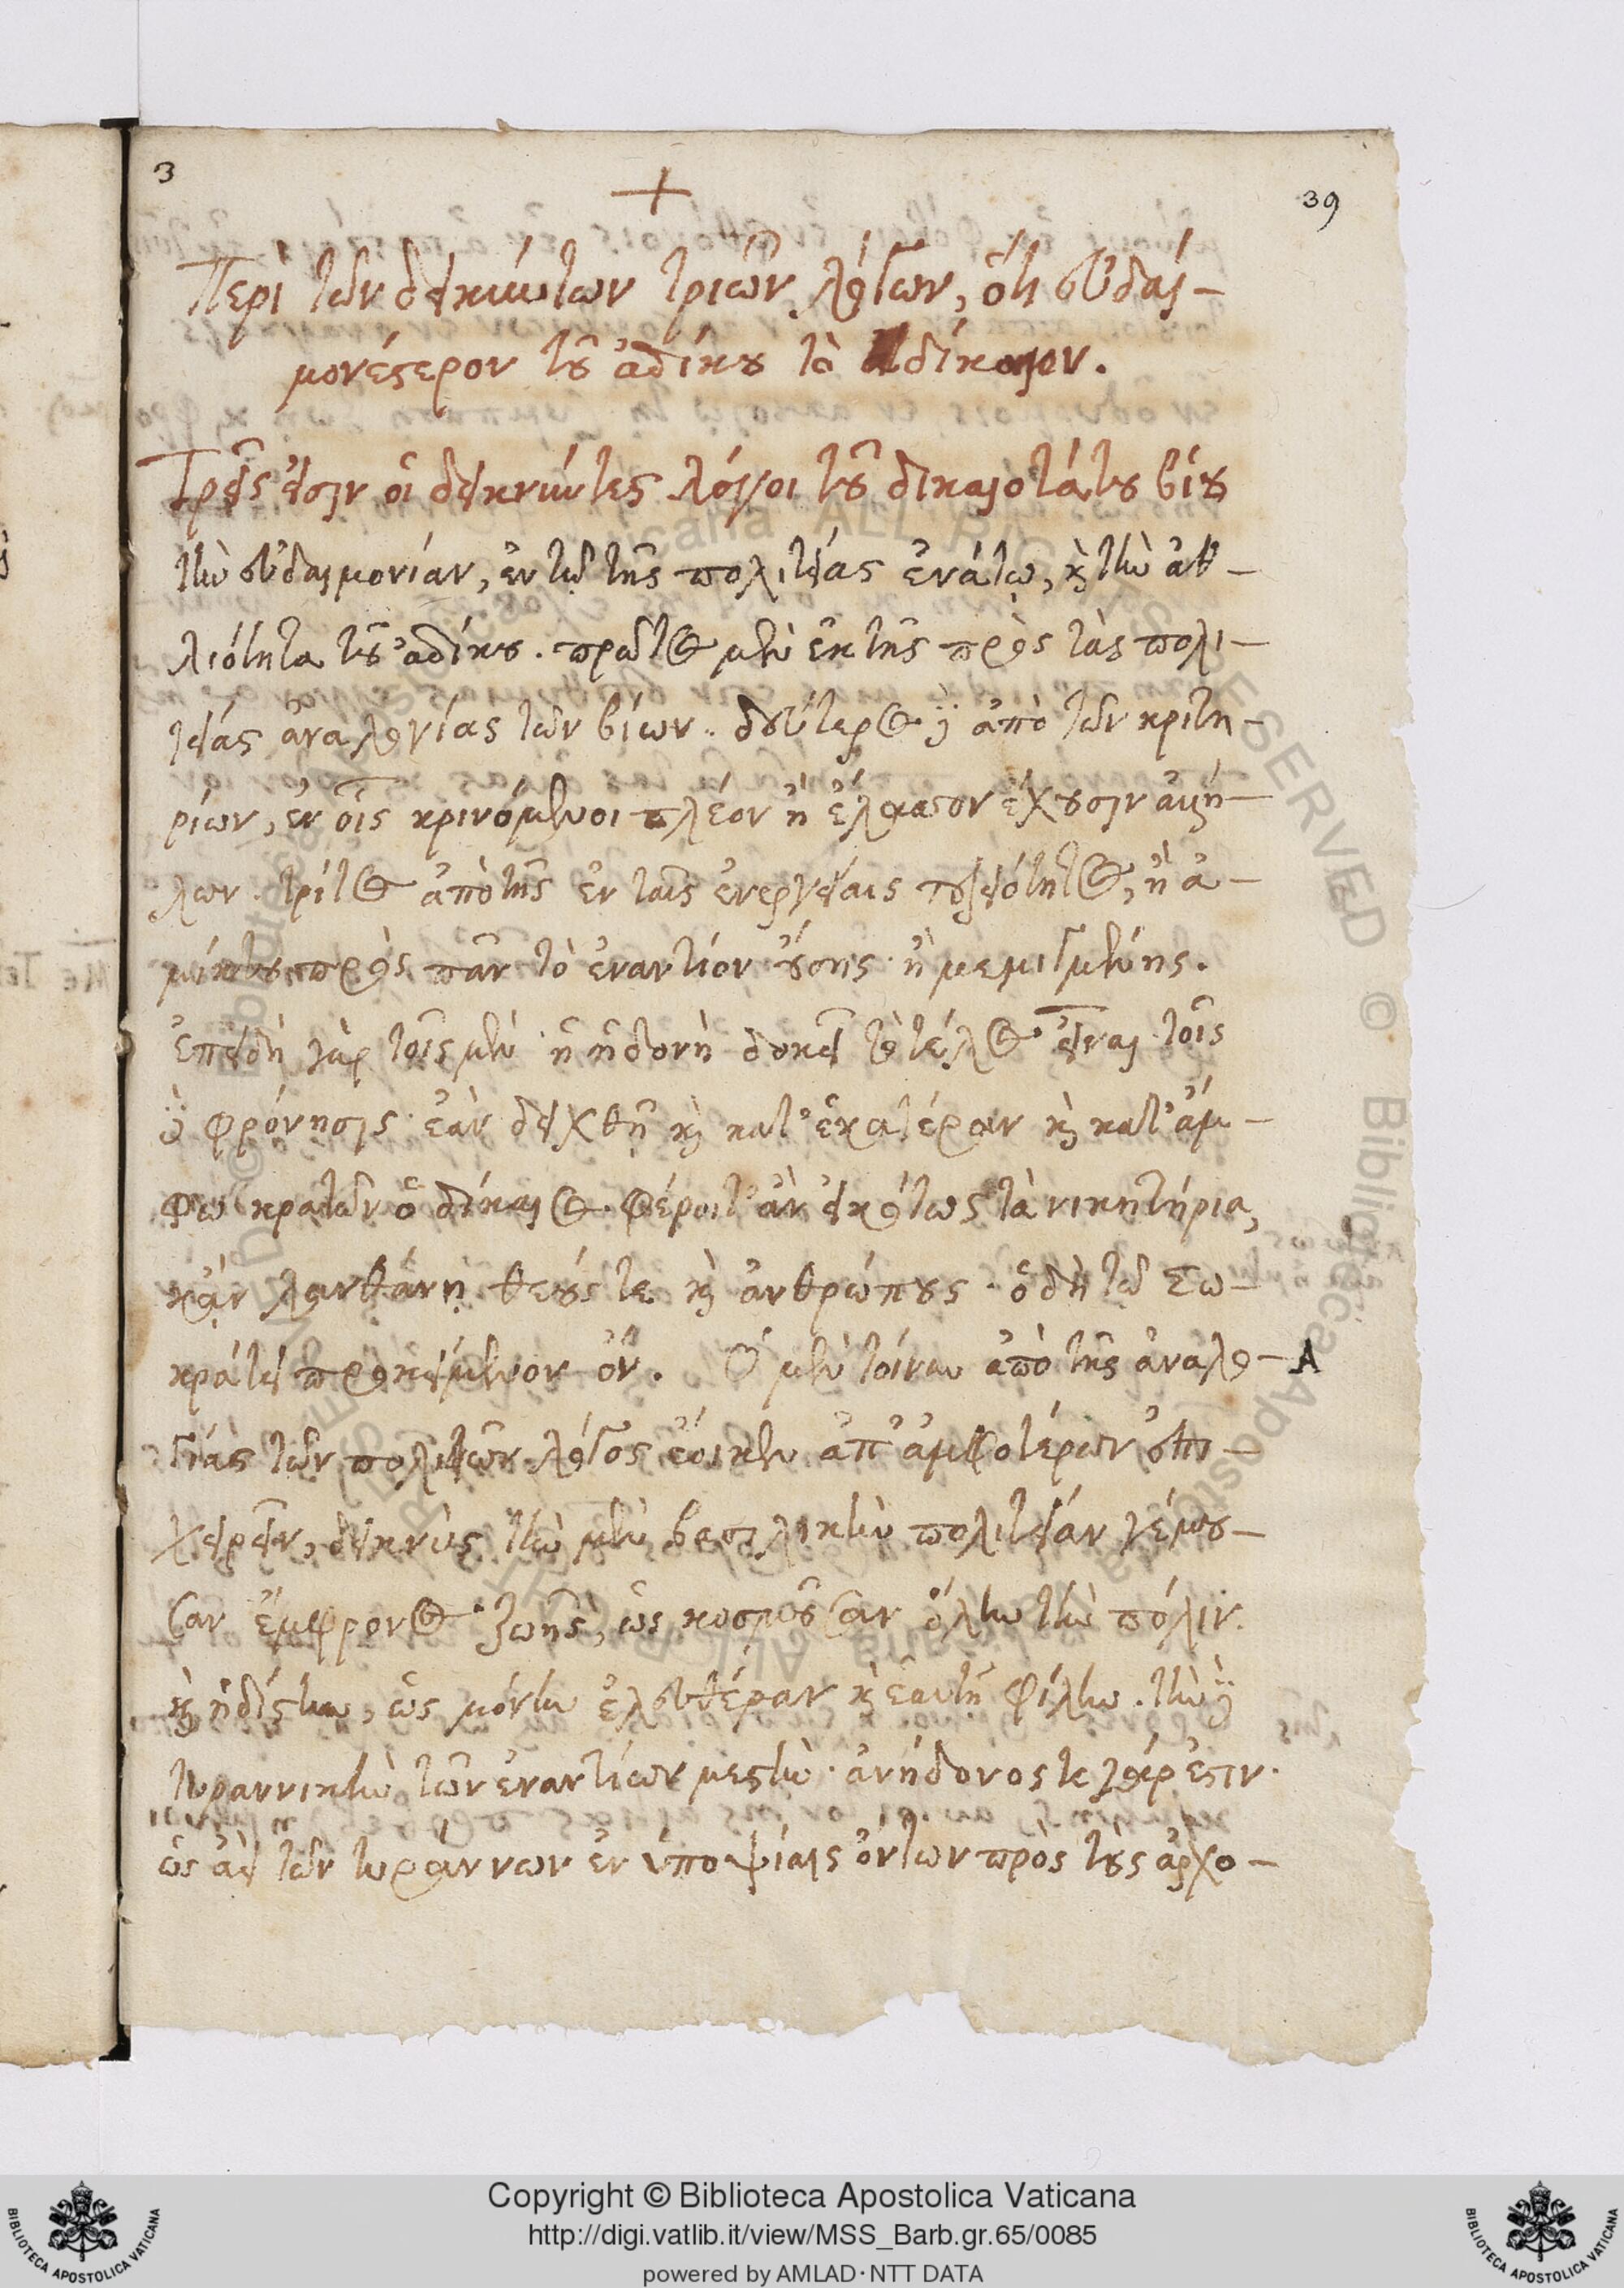 3
39
Περὶ τῶν δεικνύντων τριῶν λόγων, ὅτι εὐδαι-
μονέστερον τοῦ ἀδίκου τὸ δίκαιον.
Τρεῖς εἰσιν οἱ δεικνύντες λόγοι τοῦ δικαιοτάτου βίου
τὴν εὐδαιμονίαν, ἐν τῷ τῆς πολιτείας ἐνάτῳ, καὶ τὴν ἀθ-
λιότητα τοῦ ἀδίκου. πρῶτος μὲν ἐκ τῆς πρὸς τὰς πολι-
τείας ἀναλογίας τῶν βίων. δεύτερος δὲ ἀπὸ τῶν κριτη-
ρίων, ἐν οἷς κρινόμενοι πλέον ἢ ἔλασσον ἔχουσιν ἀλλή-
λων. τρίτος ἀπὸ τῆς ἐν ταῖς ἐνεργείαις τελειότητος, ἢ ἀ-
μίκτου πρὸς πᾶν τὸ ἐναντίον οὔσης· ἢ μεμιγμένης.
ἐπειδὴ γὰρ τοῖς μὲν ἡ ἡδονὴ δοκεῖ τὸ τέλος εἶναι τοῖς
δὲ φρόνησις· ἐὰν δειχθῇ καὶ κατ' ἑκατέραν καὶ κατ' ἄμ-
φω κρατῶν ὁ δίκαιος. φέροιτ' ἂν εἰκότως τὰ νικητήρια,
κἂν λανθάνῃ θεούς τε καὶ ἀνθρώπους· ὃ δὴ τῷ Σω-
κράτει προκείμενον ὄν. Ὁ μὲν τοίνυν ἀπὸ τῆς ἀναλο- A
γίας τῶν πολιτειῶν λόγος ἔοικεν ἀπ' ἀμφοτέρων ἐπι-
χειρεῖν, δεικνὺς τὴν μὲν βασιλικὴν πολιτείαν γέμου-
σαν ἔμφρονος ζωῆς, ὡς κοσμοῦσαν ὅλην τὴν πόλιν.
καὶ ἡδίστην, ὡς μόνην ἐλευθέραν καὶ ἑαυτῇ φίλην. τὴν δὲ
τυραννικὴν τῶν ἐναντίων μεστὴν· ἀνήδονός τε γάρ ἐστιν·
ὡς ἀεὶ τῶν τυράννων ἐν ὑποψίαις ὄντων πρὸς τοὺς ἀρχο-
Copyright © Biblioteca Apostolica Vaticana
http://digi.vatlib.it/view/MSS_Barb.gr.65/0085
powered by AMLAD·NTT DATA